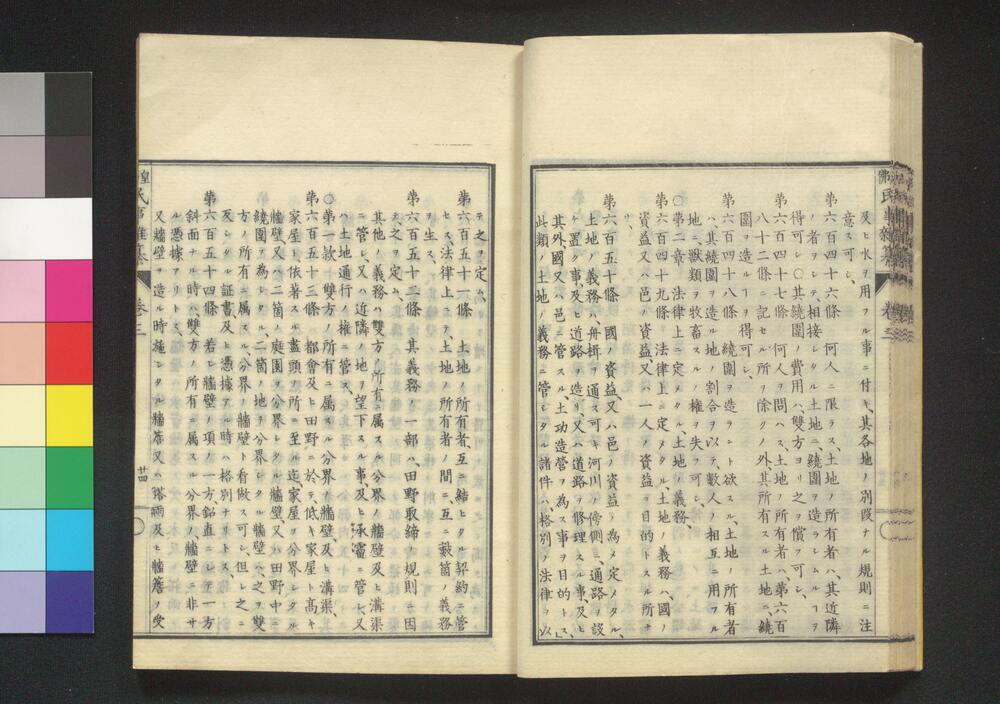 及ヒ水ヲ用フル事ニ付キ、其各地ノ別段ナル規則ニ注
意ス可シ、
第六百四十六條 何人ニ限ラス土地ノ所有者ハ、其近隣
ノ者ヲシテ、相接シタル土地ニ、繞圍ヲ造ラシムルヿヲ
得可シ、〇其繞圍ノ費用ハ、雙方ヨリ之ヲ償フ可シ、
第六百四十七條 何人ヲ問ハス、土地ノ所有者ハ、第六百
八十二條ニ記セル所ノ除クノ外、其所有スル土地ニ、繞
圍ヲ造ルヿヲ得可シ、
第六百四十八條 繞圍ヲ造ラント欲スル、土地ノ所有者
ハ、其繞圍ヲ造ル地ノ割合ヲ以テ、數人ノ相互ニ用フル
地ニ、獸類ヲ牧畜スルノ權ヲ失フ可シ、
〇第二章 法律上ニ定メタル、土地ノ義務、
第六百四十九條 法律上ニ定メタル、土地ノ義務ハ、國ノ
資益又ハ邑ノ資益又ハ一人ノ資益ヲ目的トスル所ナ
リ、
第六百五十條 國ノ資益又ハ邑ノ資益ノ為メ定メタル、
土地ノ義務ハ、舟楫ヲ通ス可キ河川ノ傍側ニ通路ヲ設
ケ置ク事、及ヒ道路ヲ造リ又ハ道路ヲ修理スル事、及ヒ
其外、國又ハ邑ニ管スル、土功造營ヲ為ス事ヲ目的トス、
此類ノ土地ノ義務ニ管シタル諸件ハ、格別ノ法律ヲ以
テ之ヲ定ム、
第六百五十一條 土地ノ所有者、互ニ結ヒタル契約ニ管
セス、法律上ニテ、土地ノ所有者ノ間ニ、互ニ數箇ノ義務
ヲ生ス、
第六百五十二條 其義務ノ一部ハ、田野取締ノ規則ニ因
テ之ヲ定ム、
其他ノ義務ハ、雙方ノ所有ニ属スル分界ノ牆壁及ヒ溝渠
ニ管シ、又ハ近隣ノ地ヲ望下スル事、及ヒ承霤ニ管シ、又
ハ土地通行ノ權ニ管ス、
〇第一款 雙方ノ所有ニ属スル分界ノ牆壁及ヒ溝渠、
第六百五十三條 都會及ヒ田野ニ於テ、低キ家屋ト高キ
家屋ト依著スル盡頭ノ所ニ至ル迄、家屋ヲ分界シタル
牆壁、又ハ二箇ノ庭園ヲ分界シタル牆壁、又ハ田野中ニ
繞圍ヲ為シタル二箇ノ地ヲ分界シタル牆壁ハ、之ヲ雙
方ノ所有ニ属スル、分界ノ牆壁ト看做ス可シ、但シ之ニ
反シタル証書及ヒ憑據アル時ハ、格別ナリトス、
第六百五十四條 若シ牆壁ノ項ノ一方、鉛直ニシテ、一方
斜面ナル時ハ、雙方ノ所有ニ属スル分界ノ牆壁ニ非サ
ル憑據アリトス、
又牆壁ヲ造ル時施シタル牆簷又ハ
及ヒ牆簷ノ受
卷三
廿四